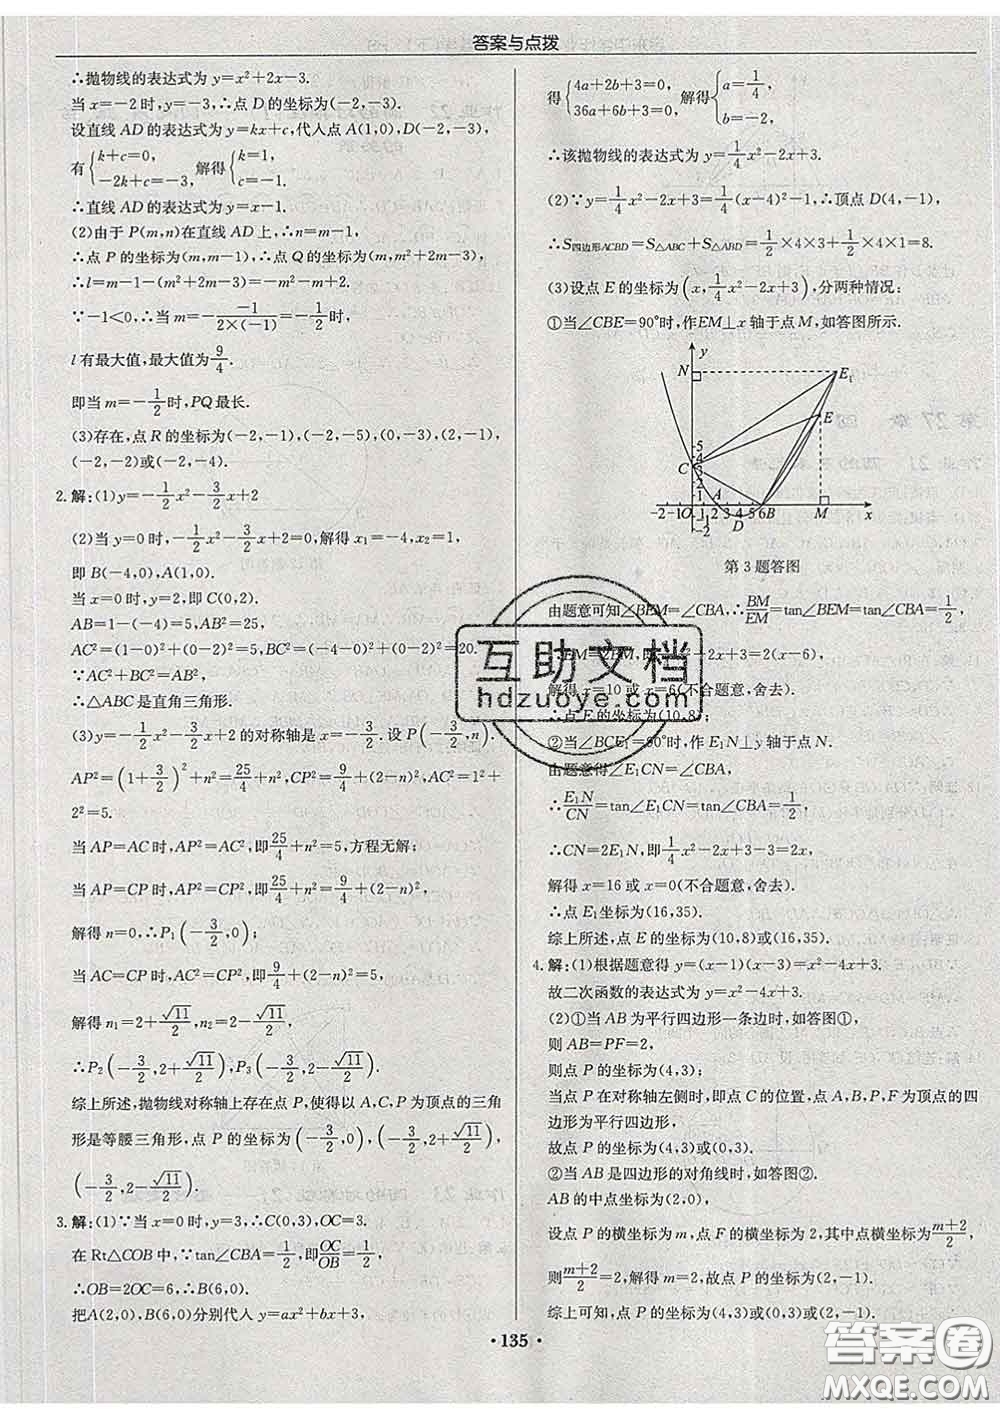 答案与点拨
∴抛物线的表达式为 y=x²+2x-3.
当 x=-2 时,y=-3,∴点 D 的坐标为(-2,-3).
设直线 AD 的表达式为 y=kx+c,代人点 A(1,0),D(-2,-3),
有{k+c=0, -2k+c=-3, 解得{k=1, c=-1.
∴直线 AD 的表达式为 y=x-1.
(2)由于 P(m,n)在直线 AD 上,∴n=m-1,
∴点 P 的坐标为(m,m-1),∴点 Q 的坐标为(m,m²+2m-3).
∴l=m-1-(m²+2m-3)=-m²-m+2.
∵-1<0,∴当 m=-\frac{-1}{2×(-1)}=-\frac{1}{2}时,
l 有最大值,最大值为\frac{9}{4}.
即当 m=-\frac{1}{2}时,PQ 最长.
(3)存在,点 R 的坐标为(-2,-1),(-5,0),(0,-3),(2,-1),
(-2,-2)或(-2,-4).
2.解:(1)y=-\frac{1}{2}x²-\frac{3}{2}x+2
(2)当 y=0 时,-\frac{1}{2}x²-\frac{3}{2}x+2=0,解得 x₁=-4,x₂=1,
即 B(-4,0),A(1,0).
当 x=0 时,y=2,即 C(0,2).
AB=1-(-4)=5,AB²=25,
AC²=(1-0)²+(0-2)²=5,BC²=(-4-0)²+(0-2)²=20.
∵AC²+BC²=AB²,
∴△ABC 是直角三角形.
(3)y=-\frac{1}{2}x²-\frac{3}{2}x+2 的对称轴是 x=-\frac{3}{2}. 设 P(-\frac{3}{2},n).
AP²=(1+\frac{3}{2})²+n²=\frac{25}{4}+n²,CP²=\frac{9}{4}+(2-n)²,AC²=1²+
2²=5.
当 AP=AC 时,AP²=AC²,即\frac{25}{4}+n²=5,方程无解;
当 AP=CP 时,AP²=CP²,即\frac{25}{4}+n²=\frac{9}{4}+(2-n)²,
解得 n=0,∴P₁(-\frac{3}{2},0);
当 AC=CP 时,AC²=CP²,即\frac{9}{4}+(2-n)²=5,
解得 n₁=2+\frac{√11}{2},n₂=2-\frac{√11}{2},
∴P₂(-\frac{3}{2},2+\frac{√11}{2}),P₃(-\frac{3}{2},2-\frac{√11}{2}).
综上所述,抛物线对称轴上存在点 P,使得以 A,C,P 为顶点的三角
形是等腰三角形,点 P 的坐标为(-\frac{3}{2},0),(-\frac{3}{2},2+\frac{√11}{2}),
(-\frac{3}{2},2-\frac{√11}{2}).
3.解:(1)∵当 x=0 时,y=3,∴C(0,3),OC=3.
在 Rt△COB 中,∵tan∠CBA=\frac{1}{2},即\frac{OC}{OB}=\frac{1}{2},
∴OB=2OC=6,∴B(6,0).
把 A(2,0),B(6,0)分别代人 y=ax²+bx+3,
得{4a+2b+3=0, 36a+6b+3=0, 解得{a=\frac{1}{4}, b=-2.
∴该抛物线的表达式为 y=\frac{1}{4}x²-2x+3.
(2)∵y=\frac{1}{4}x²-2x+3=\frac{1}{4}(x-4)²-1,∴顶点 D(4,-1),
∴S四边形ACBD=S△ABC+S△ABD=\frac{1}{2}×4×3+\frac{1}{2}×4×1=8.
(3)设点 E 的坐标为(x,\frac{1}{4}x²-2x+3),分两种情况:
①当∠CBE=90°时,作 EM⊥x 轴于点 M,如答图所示.
y
N
E₁
E
5
4
C 3
2
1
A
-2 -1 O 1 2 3 4 5 6B M x
-2 D
第 3 题答图
由题意可知∠BEM=∠CBA,∴\frac{BM}{EM}=tan∠BEM=tan∠CBA=\frac{1}{2},
∴EM=2BM,即\frac{1}{4}x²-2x+3=2(x-6),
解得 x=10 或 x=6(不合题意,舍去).
∴点 E 的坐标为(10,8);
②当∠BCE₁=90°时,作 E₁N⊥y 轴于点 N.
由题意得∠E₁CN=∠CBA,
∴\frac{E₁N}{CN}=tan∠E₁CN=tan∠CBA=\frac{1}{2},
∴CN=2E₁N,即\frac{1}{4}x²-2x+3-3=2x,
解得 x=16 或 x=0(不合题意,舍去).
∴点 E₁坐标为(16,35).
综上所述,点 E 的坐标为(10,8)或(16,35).
4.解:(1)根据题意得 y=(x-1)(x-3)=x²-4x+3.
故二次函数的表达式为 y=x²-4x+3.
(2)①当 AB 为平行四边形一条边时,如答图①,
则 AB=PF=2,
则点 P 的坐标为(4,3);
当点 P 在对称轴左侧时,即点 C 的位置,点 A,B,P,F 为顶点的四
边形为平行四边形,
故点 P 的坐标为(4,3)或(0,3).
②当 AB 是四边形的对角线时,如答图②.
AB 的中点坐标为(2,0),
设点 P 的横坐标为 m,点 F 的横坐标为 2,其中点横坐标为\frac{m+2}{2},
则\frac{m+2}{2}=2,解得 m=2,故点 P 的坐标为(2,-1).
综上可知,点 P 的坐标为(4,3)或(0,3)或(2,-1).
·135·
互助文档
hdzuoye.com
答案圈
MXQE.COM